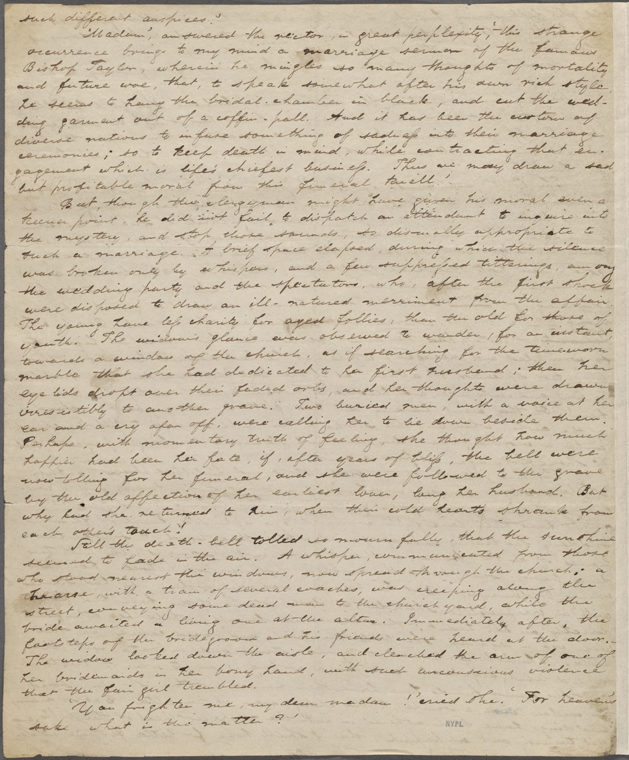 such different auspices.'
'Madam', answered the rector, in great perplexity, 'this strange
occurrence brings to my mind a marriage sermon of the famous
Bishop Taylor, wherein he mingles so many thoughts of mortality
and future woe, that, to speak somewhat after his own rich style,
he seems to hang the bridal-chamber in black, and cut the wed-
ding garment out of a coffin-pall. And it has been the custom of
diverse nations to infuse something of sadness into their marriage
ceremonies; so to keep death in mind, while contracting that en-
gagement which is life's chiefest business. Thus we may draw a sad
but profitable moral from this funeral knell.'
But though the clergyman might have given his moral even a
keener point, he did not fail to dispatch an attendant to inquire into
the mystery, and stop those sounds, so dismally appropriate to
such a marriage. A brief space elapsed, during which the silence
was broken only by whispers, and a few suppressed titterings, among
the wedding party and the spectators, who, after the first shock
were disposed to draw an ill-natured merriment from the affair.
The young have less charity for aged follies, than the old for those of
youth. The widow's glance was observed to wander, for an instant
towards a window of the church, as if searching for the timeworn
marble that she had dedicated to her first husband; then her
eyelids dropt over their faded orbs, and her thoughts were drawn
irresistibly to another grave. Two buried men, with a voice at her
ear and a cry afar off, were calling her to lie down beside them.
Perhaps, with momentary truth of feeling, she thought how much
happier had been her fate, if, after years of bliss, the bell were
now tolling for her funeral, and she were followed to the grave
by the old affection of her earliest lover, long her husband. But
why had she returned to him, when their cold hearts shrank from
each other's touch!
Still the death-bell tolled so mournfully, that the sunshine
seemed to fade in the air. A whisper, communicated from those
who stood nearest the windows, now spread through the church; a
hearse, with a train of several coaches, was creeping along the
street, conveying some dead man to the churchyard, while the
bride awaited a living one at the altar. Immediately after, the
footsteps of the bridegroom and his friends were heard at the door.
The widow looked down the aisle, and clenched the arm of one of
her bridemaids in her bony hand, with such unconscious violence
that the fair girl trembled.
'You frighten me, my dear madam!' cried she. 'For heaven's
sake, what is the matter?'
NYPL